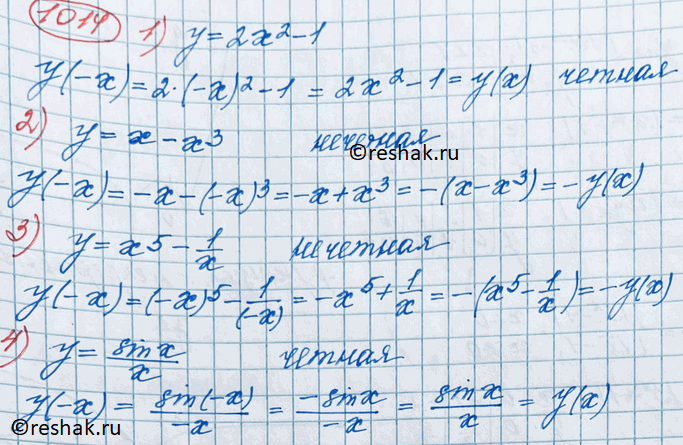 1014 1) y = 2x² - 1
y(-x) = 2·(-x)² - 1 = 2x² - 1 = y(x) четная
2) y = x - x³ нечетная
©reshak.ru
y(-x) = -x - (-x)³ = -x + x³ = -(x - x³) = -y(x)
3) y = x⁵ - 1/x нечетная
y(-x) = (-x)⁵ - 1/(-x) = -x⁵ + 1/x = -(x⁵ - 1/x) = -y(x)
4) y = sinx/x четная
y(-x) = sin(-x)/-x = -sinx/-x = sinx/x = y(x)
©reshak.ru